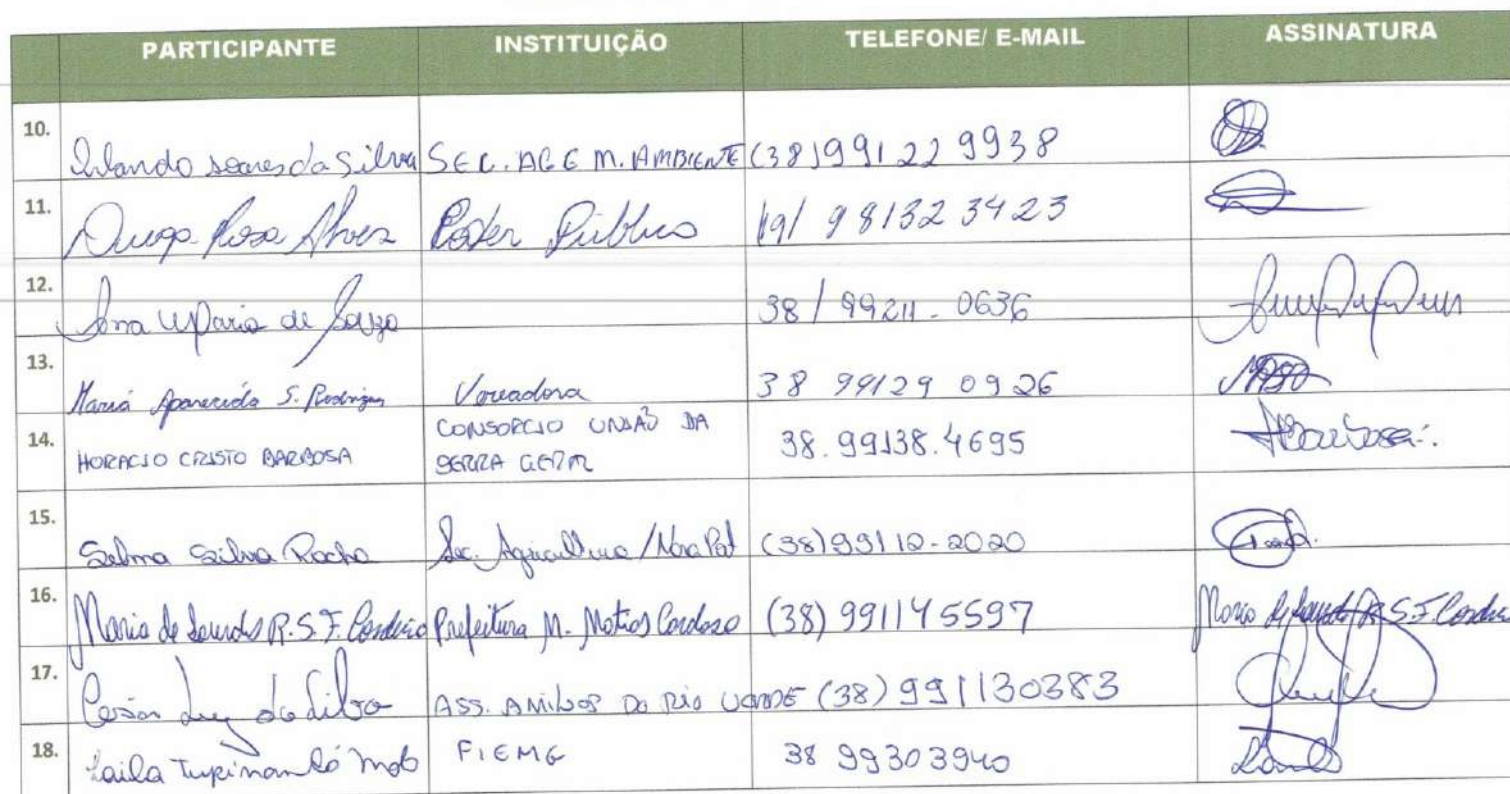 PARTICIPANTE INSTITUIÇÃO TELEFONE/ E-MAIL ASSINATURA
10. soares da Silva SEC. AG E M. AMBIENTE (38) 99122 9938
11. Diego Rosa Alves Poder Público 19/ 981323423
12. Ana Maria de Souza 38/ 99211-0636
13. Maria Aparecida S. Rodrigues Vereadora 38 99129 0926
CONSORCIO UNIÃO DA
14. HORACIO CRISTO BARBOSA 38.99138.4695 HBarbosa
SERRA GERAL
15. Selma Silva Rocha Sec. Agricultura / Nova (38)99112-2020
16. Maria de Lourdes R.S.F. Cordeiro Prefeitura M. Matias Cardoso (38) 991145597 Maria de Lourdes R.S.F. Cordeiro
17. da Silva ASS. AMIGOS DO RIO VERDE (38) 991130383
18. Laila FIEMG 38 99303940